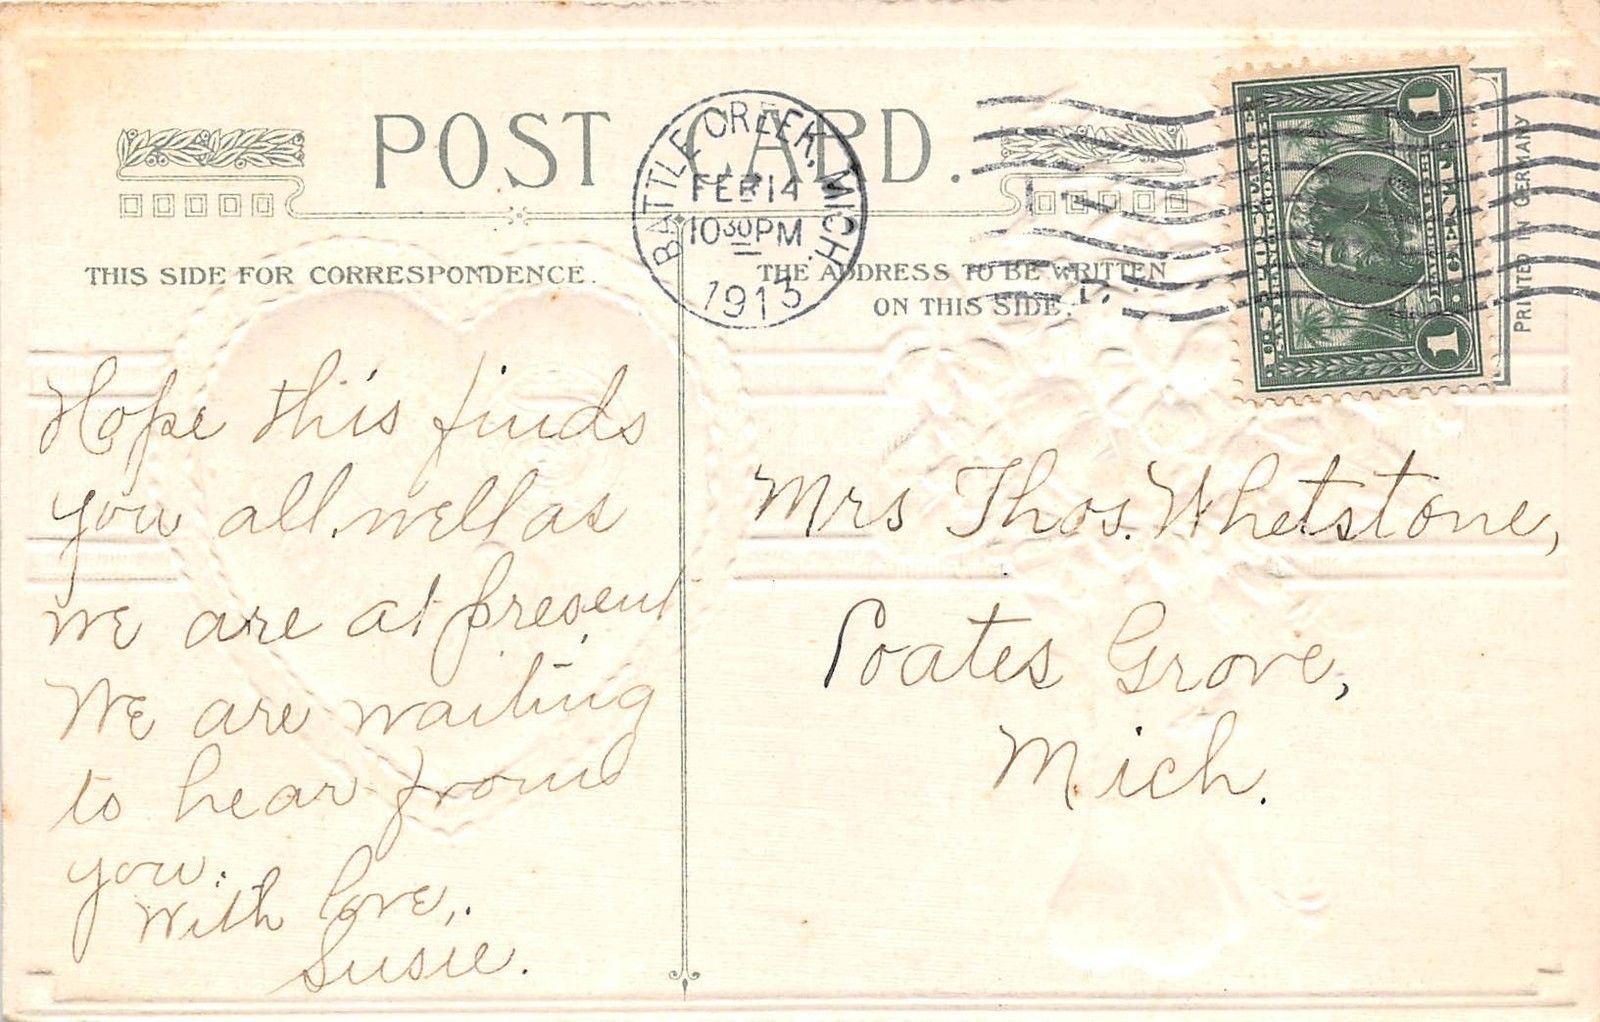 POST CARD.
BATTLE CREEK, MICH.
FEB 14
10 30 PM
1913
THIS SIDE FOR CORRESPONDENCE.
THE ADDRESS TO BE WRITTEN
ON THIS SIDE.
PRINTED IN GERMANY
1
1
Hope this finds
you all well as
we are at present
We are waiting
to hear from
you.
With love,
Susie.
Mrs Thos. Whetstone,
Coates Grove,
Mich.